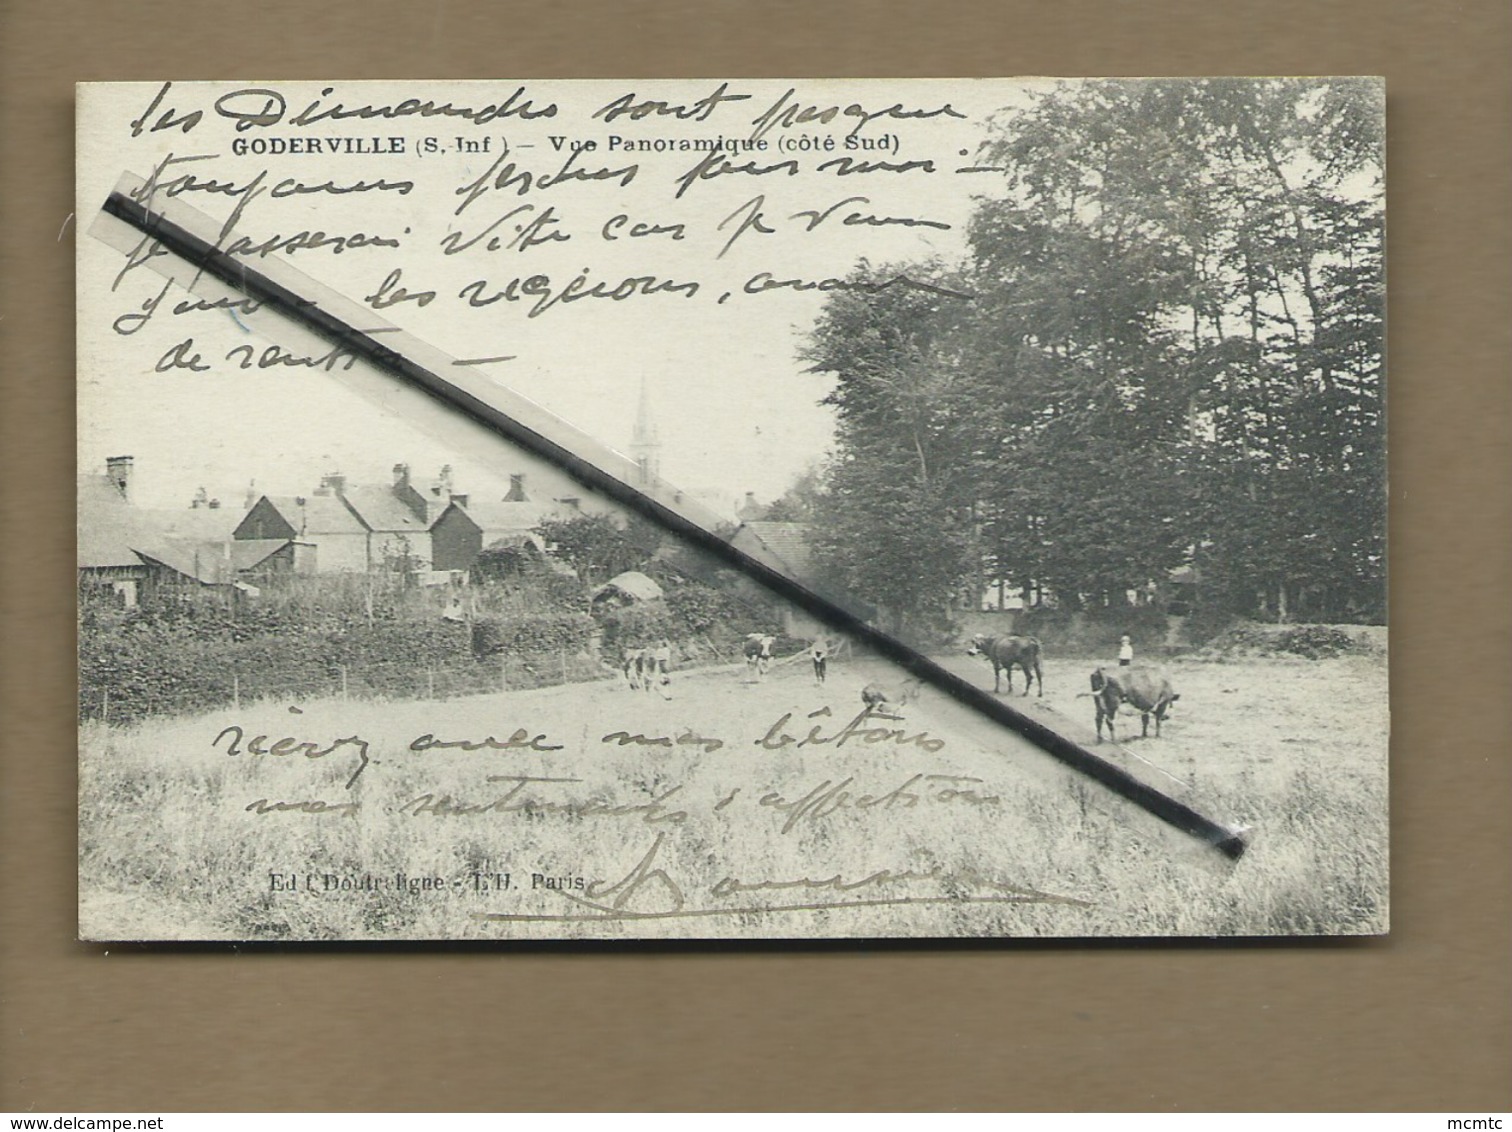 les Dimanches sont presque
GODERVILLE (S. Inf ) — Vue Panoramique (côté Sud)
toujours perdus pour moi —
je passerai vite car je
les régions, avant
de
avec mes bêtons
mes sentiments d'affection
Edit Doutreligne - L'H. Paris
www.delcampe.net
mcmtc